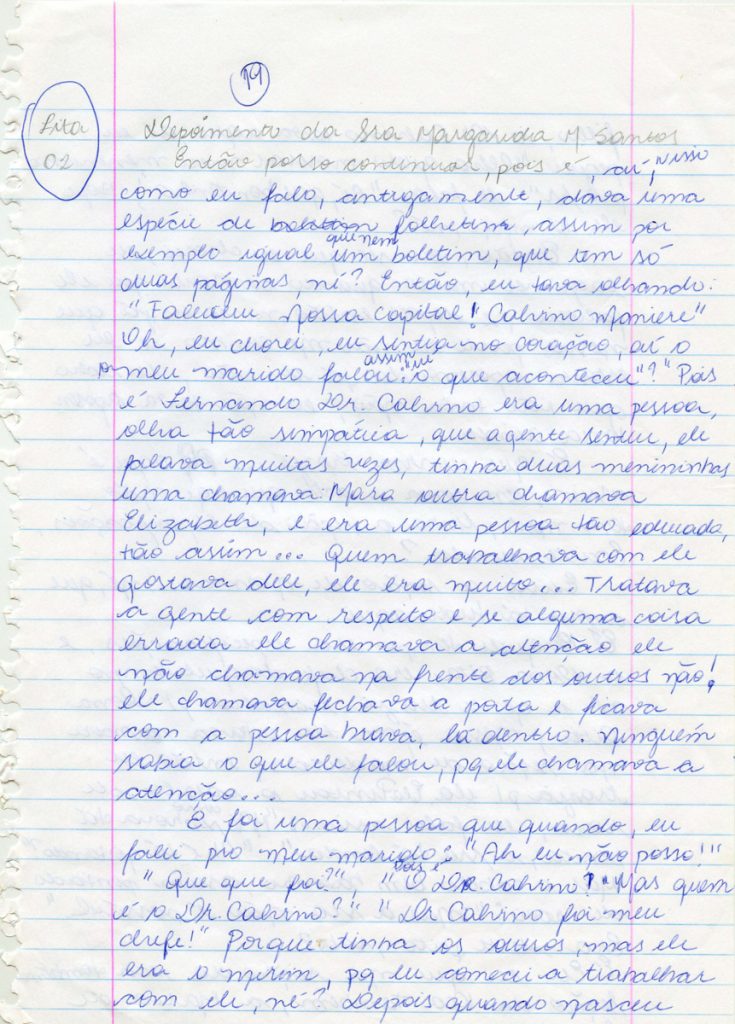 19
Fita
02
Depoimento da Sra Margarida M Santos
Então posso continuar, pois é, aí, nisso
como eu falo, antigamente, dava uma
espécie de folhetim, assim por
exemplo igual que nem um boletim, que tem só
duas páginas, né? Então, eu tava olhando:
"Faleceu Nossa Capital! Calvino Maniere"
Oh, eu chorei, eu sentia no coração, aí o
meu marido falou: assim "ué o que aconteceu"?" Pois
é Fernando Dr. Calvino era uma pessoa,
olha tão simpática, que a gente sentiu, ele
falava muitas vezes, tinha duas menininhas
uma chamava: Mara outra chamava
Elizabeth, e era uma pessoa tão educada,
tão assim... Quem trabalhava com ele
gostava dele, ele era muito... Tratava
a gente com respeito e se alguma coisa
errada ele chamava a atenção ele
não chamava na frente dos outros não!
ele chamava fechava a porta e ficava
com a pessoa brava, lá dentro. Ninguém
sabia o que ele falou, pq ele chamava a
atenção...
E foi uma pessoa que quando, eu
falei pro meu marido: "Ah eu não posso!"
"Que que foi?", "pois é O Dr. Calvino? "Mas quem
é o Dr. Calvino?" "Dr Calvino foi meu
chefe!" Porque tinha os outros, mas ele
era o mesmo, pq eu comecei a trabalhar
com ele, né? Depois quando nasceu